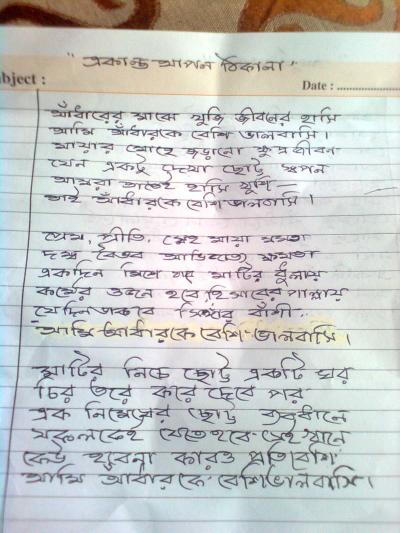 "একান্ত আপন ঠিকানা"
bject :
Date :
আঁধারের মাঝে খুজি জীবনের হাসি
আমি আঁধারকে বেশি ভালবাসি।
মায়ার মোহে জড়ানো ক্ষুদ্র জীবন
যেন একটু দেখা ছোট্ট স্বপন
আমরা তাতেই হাসি খুশি —
তাই আঁধারকে বেশি ভালবাসি।
প্রেম, প্রীতি, স্নেহ মায়া মমতা
দম্ভ বৈভব আভিজাত্য ক্ষমতা
একদিন মিশে যায় মাটির ধুলায়
কর্মের ওজন হবে হিসাবের পাল্লায়
যেদিন বাজবে শিঙার বাঁশী
আমি আধারকে বেশি ভালবাসি।
মাটির নিচে ছোট্ট একটি ঘর
চির তরে করে দেবে পর
এক নিমেষের ছোট্ট ব্যবধানে
সকলকেই যেতে হবে সেই খানে
কেউ হবেনা কারও প্রতিবেশি
আমি আধারকে বেশি ভালবাসি।